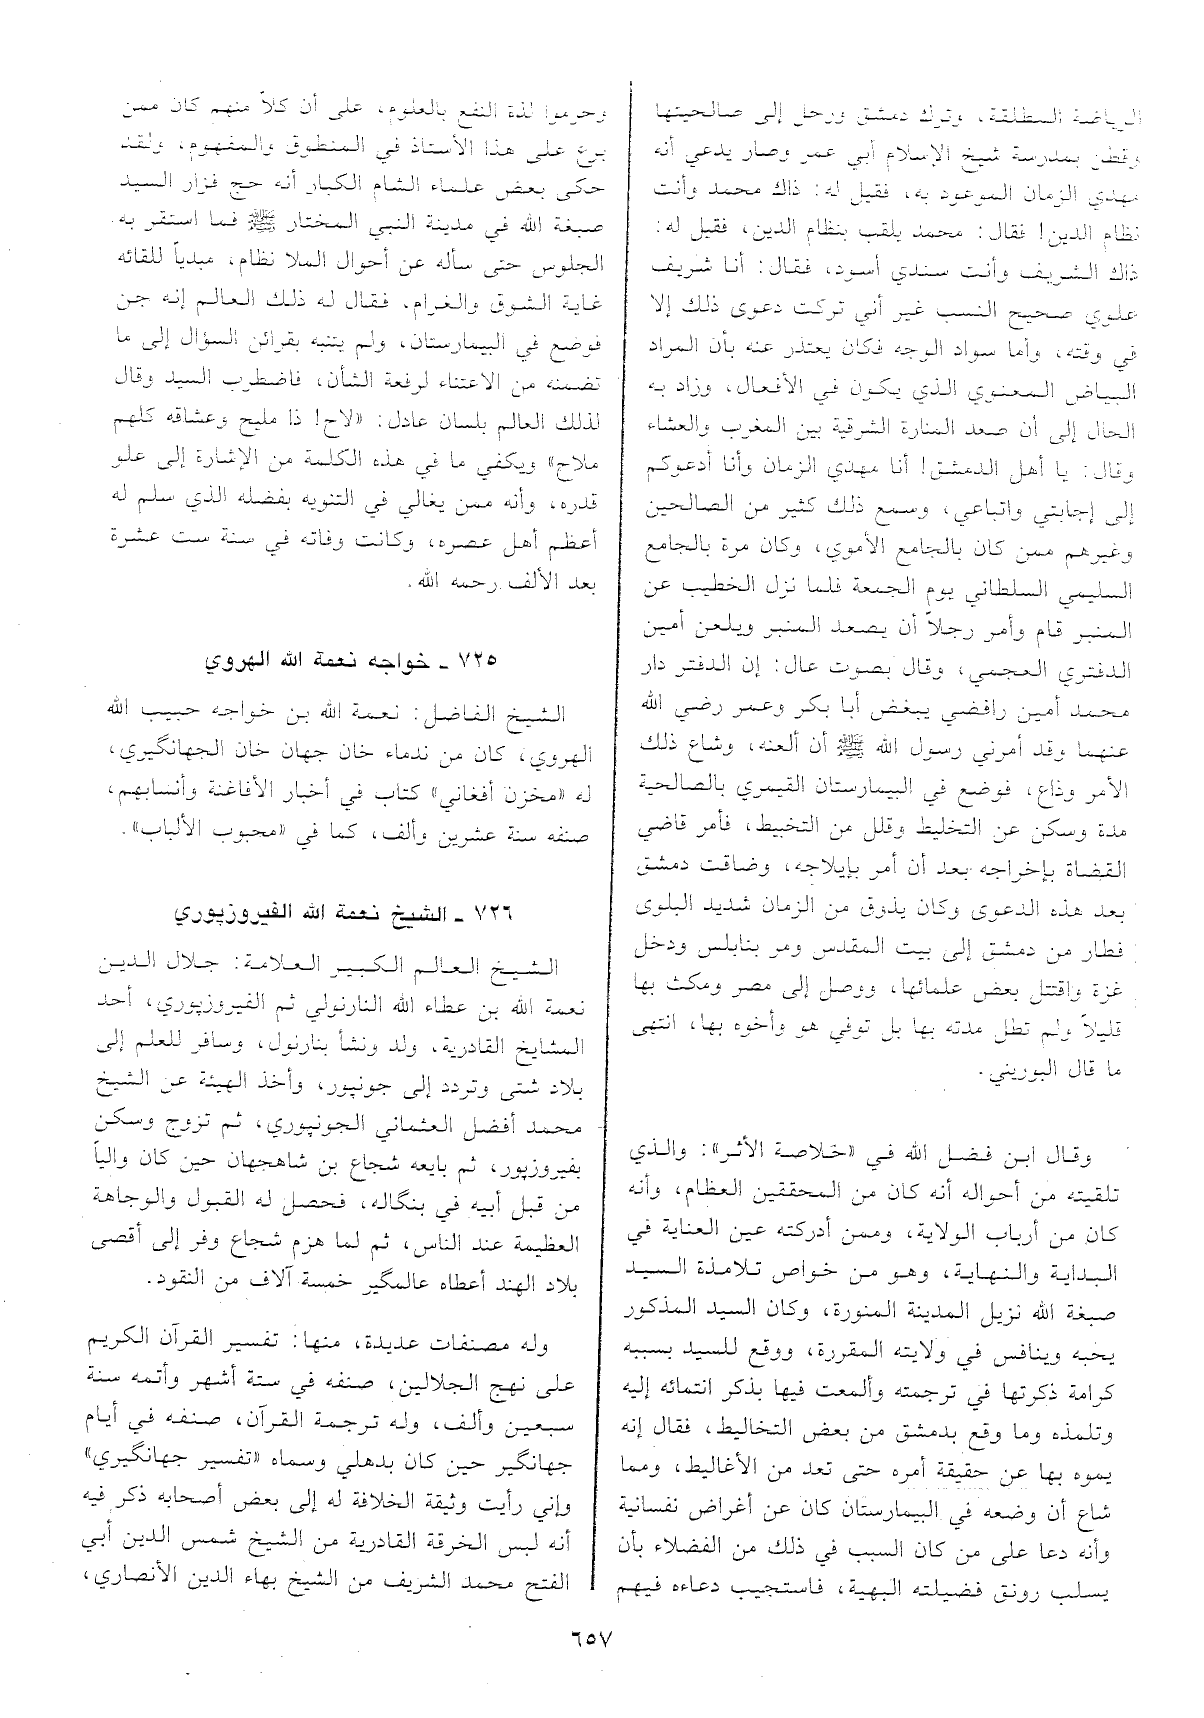 الرياضة المطلقة، وترك دمشق ورحل إلى صالحيتها
وقطن بمدرسة شيخ الإسلام أبي عمر وصار يدعي أنه
مهدي الزمان الموعود به، فقيل له: ذاك محمد وأنت
نظام الدين! فقال: محمد يلقب بنظام الدين، فقيل له:
ذاك الشريف وأنت سندي أسود، فقال: أنا شريف
علوي صحيح النسب غير أني تركت دعوى ذلك إلا
في وقته، وأما سواد الوجه فكان يعتذر عنه بأن المراد
البياض المعنوي الذي يكون في الأفعال، وزاد به
الحال إلى أن صعد المنارة الشرقية بين المغرب والعشاء
وقال: يا أهل الدمشق! أنا مهدي الزمان وأنا أدعوكم
إلى إجابتي واتباعي، وسمع ذلك كثير من الصالحين
وغيرهم ممن كان بالجامع الأموي، وكان مرة بالجامع
السليمي السلطاني يوم الجمعة فلما نزل الخطيب عن
المنبر قام وأمر رجلاً أن يصعد المنبر ويلعن أمين
الدفتري العجمي، وقال بصوت عال: إن الدفتر دار
محمد أمين رافضي يبغض أبا بكر وعمر رضي الله
عنهما وقد أمرني رسول الله ﷺ أن ألعنه، وشاع ذلك
الأمر وذاع، فوضع في البيمارستان القيمري بالصالحية
مدة وسكن عن التخليط وقلل من التخبيط، فأمر قاضي
القضاة بإخراجه بعد أن أمر بإيلاجه، وضاقت دمشق
بعد هذه الدعوى وكان يذوق من الزمان شديد البلوى
فطار من دمشق إلى بيت المقدس ومر بنابلس ودخل
غزة واقتتل بعض علمائها، ووصل إلى مصر ومكث بها
قليلاً ولم تطل مدته بها بل توفي هو وأخوه بها، انتهى
ما قال البوريني.
وقال ابن فضل الله في «خلاصة الأثر»: والذي
تلقيته من أحواله أنه كان من المحققين العظام، وأنه
كان من أرباب الولاية، وممن أدركته عين العناية في
البداية والنهاية، وهو من خواص تلامذة السيد
صبغة الله نزيل المدينة المنورة، وكان السيد المذكور
يحبه وينافس في ولايته المقررة، ووقع للسيد بسببه
كرامة ذكرتها في ترجمته وألمعت فيها بذكر انتمائه إليه
وتلمذه وما وقع بدمشق من بعض التخاليط، فقال إنه
يموه بها عن حقيقة أمره حتى تعد من الأغاليط، ومما
شاع أن وضعه في البيمارستان كان عن أغراض نفسانية
وأنه دعا على من كان السبب في ذلك من الفضلاء بأن
يسلب رونق فضيلته البهية، فاستجيب دعاءه فيهم
وحرموا لذة النفع بالعلوم، على أن كلاً منهم كان ممن
برع على هذا الأستاذ في المنطوق والمفهوم، ولقد
حكى بعض علماء الشام الكبار أنه حج فزار السيد
صبغة الله في مدينة النبي المختار ﷺ فما استقر به
الجلوس حتى سأله عن أحوال الملا نظام، مبدياً للقائه
غاية الشوق والغرام، فقال له ذلك العالم إنه جن
فوضع في البيمارستان، ولم يتنبه بقرائن السؤال إلى ما
تضمنه من الاعتناء لرفعة الشأن، فاضطرب السيد وقال
لذلك العالم بلسان عادل: «لاح! ذا مليح وعشاقه كلهم
ملاح» ويكفي ما في هذه الكلمة من الإشارة إلى علو
قدره، وأنه ممن يغالي في التنويه بفضله الذي سلم له
أعظم أهل عصره، وكانت وفاته في سنة ست عشرة
بعد الألف رحمه الله.
٧٢٥ ـ خواجه نعمة الله الهروي
الشيخ الفاضل: نعمة الله بن خواجه حبيب الله
الهروي، كان من ندماء خان جهان خان الجهانگيري،
له «مخزن أفغاني» كتاب في أخبار الأفاغنة وأنسابهم،
صنفه سنة عشرين وألف، كما في «محبوب الألباب».
٧٢٦ ـ الشيخ نعمة الله الفيروزپوري
الشيخ العالم الكبير العلامة: جلال الدين
نعمة الله بن عطاء الله النارنولي ثم الفيروزپوري، أحد
المشايخ القادرية، ولد ونشأ بنارنول، وسافر للعلم إلى
بلاد شتى وتردد إلى جونپور، وأخذ الهيئة عن الشيخ
محمد أفضل العثماني الجونپوري، ثم تزوج وسكن
بفيروزپور، ثم بايعه شجاع بن شاهجهان حين كان والياً
من قبل أبيه في بنگاله، فحصل له القبول والوجاهة
العظيمة عند الناس، ثم لما هزم شجاع وفر إلى أقصى
بلاد الهند أعطاه عالمگير خمسة آلاف من النقود.
وله مصنفات عديدة، منها: تفسير القرآن الكريم
على نهج الجلالين، صنفه في ستة أشهر وأتمه سنة
سبعين وألف، وله ترجمة القرآن، صنفه في أيام
جهانگير حين كان بدهلي وسماه «تفسير جهانگيري»
وإني رأيت وثيقة الخلافة له إلى بعض أصحابه ذكر فيه
أنه لبس الخرقة القادرية من الشيخ شمس الدين أبي
الفتح محمد الشريف من الشيخ بهاء الدين الأنصاري،
٦٥٧